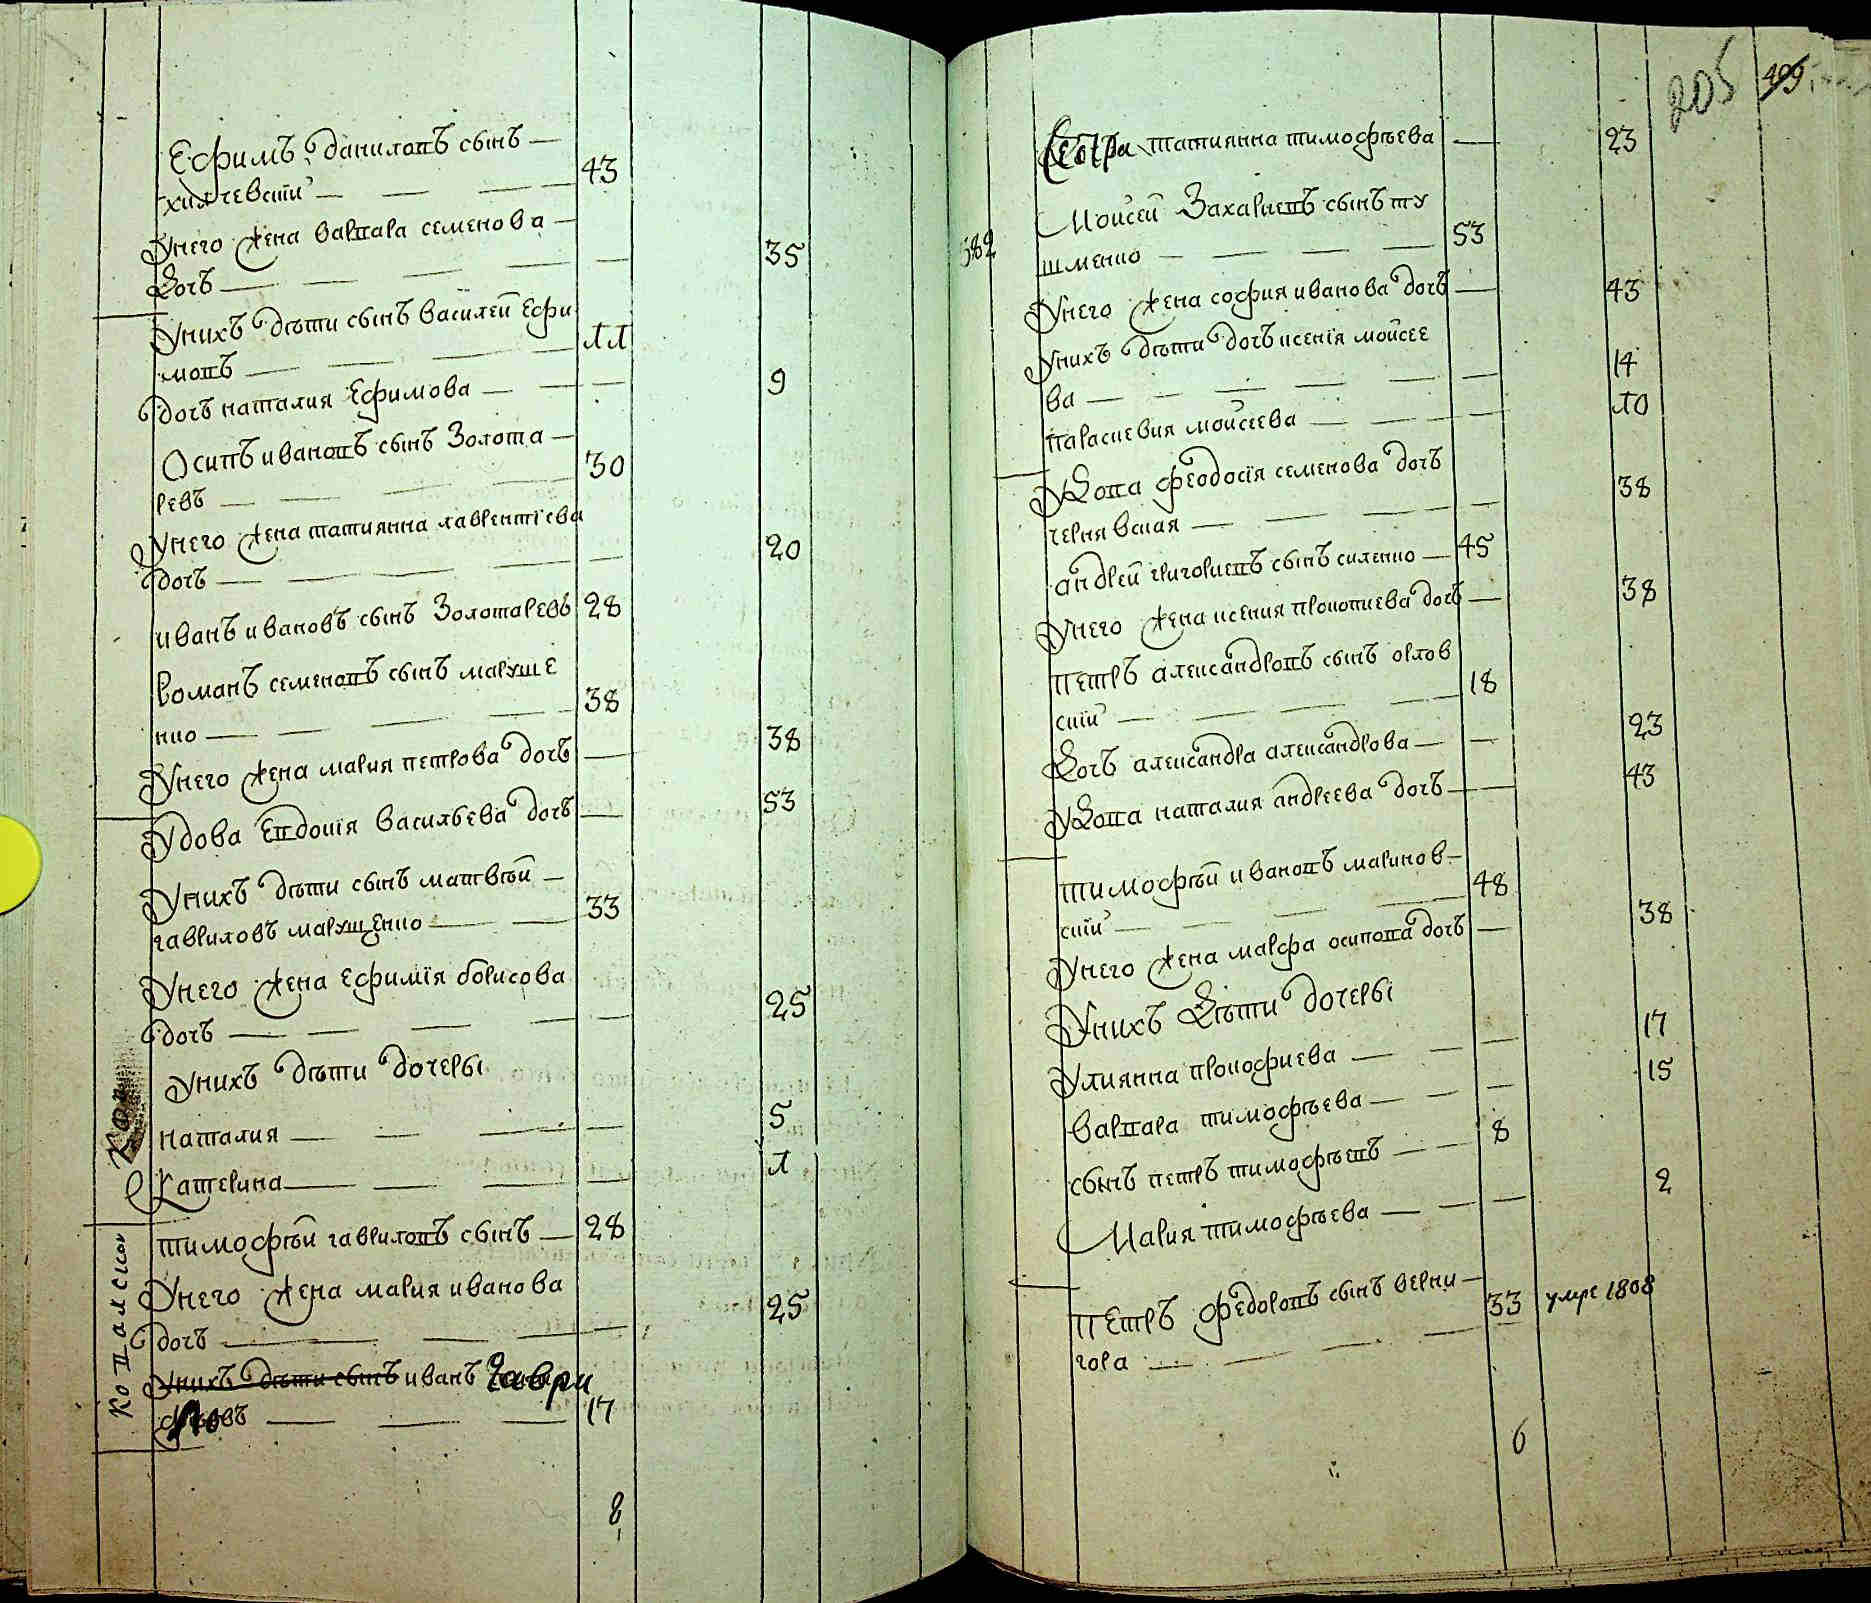 Ефимъ даниловъ сынъ —
43
У него жена варвара семенова —
дочъ — 35
У нихъ дѣти сынъ василей Ефи
мовъ — 11
дочъ наталия Ефимова — 9
Осипъ ивановъ сынъ Золота —
ревъ — 30
У него жена татиянна лаврентіева
дочъ — 20
иванъ ивановъ сынъ Золотаревъ 28
Романъ семеновъ сынъ маруще
нко — 38
У него жена мария петрова дочъ — 38
Удова Евдокія васильева дочъ — 53
У нихъ дѣти сынъ матвѣй —
гавриловъ марущенко — 33
У него жена ефимія борисова
дочъ — 25
У нихъ дѣти дочеры
наталия — 5
Катерина — 1
тимофѣй гавриловъ сынъ — 28
У него жена мария иванова
дочъ — 25
У нихъ дѣти сынъ иванъ Гаври
ловъ — 17
8
205 499
Сестра татиянна тимофѣева — 23
382 Моисей Захариевъ сынъ ту
шменко — 53
У него жена софия иванова дочъ — 43
У нихъ дѣти дочъ ксенія моисее
ва — 14
параскевия моисеева — 10
Удова феодосія семенова дочъ
чернявская — 38
андрей григориевъ сынъ силенко — 45
У него жена ксения прокопиева дочъ — 38
петръ александровъ сынъ орлов
скій — 18
Дочъ александра александрова — 23
Удова наталия андреева дочъ — 43
тимофѣй ивановъ малинов —
скій — 48
У него жена марфа осипова дочъ — 38
У нихъ Дѣти дочеры
Улиянна прокофиева — 17
варвара тимофѣева — 15
сынъ петръ тимофѣевъ — 8
Мария тимофѣева — 2
петръ федоровъ сынъ верни —
гора — 33 умре 1808
6